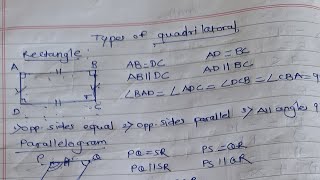 Types of quadrilateral
Rectangle:
A B
AB=DC AD=BC
AB||DC AD||BC
D C
∠BAD=∠ADC=∠DCB=∠CBA=9
→opp. sides equal →opp. sides parallel →All angles 9
Parallelogram
P Q
PQ=SR PS=QR
PQ||SR PS||QR